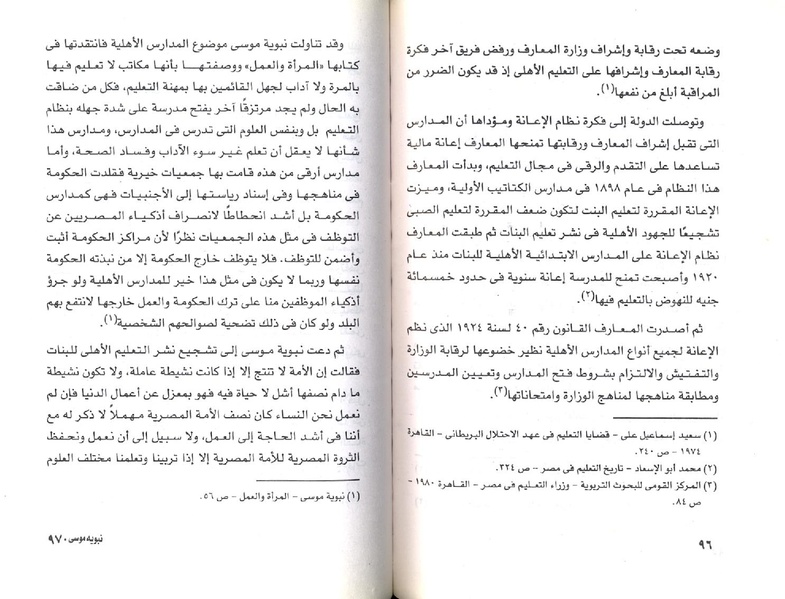 وضعه تحت رقابة وإشراف وزارة المعارف ورفض فريق آخر فكرة
رقابة المعارف وإشرافها على التعليم الأهلى إذ قد يكون الضرر من
المراقبة أبلغ من نفعها(١).
وتوصلت الدولة إلى فكرة نظام الإعانة ومؤداها أن المدارس
التى تقبل إشراف المعارف ورقابتها تمنحها المعارف إعانة مالية
تساعدها على التقدم والرقى فى مجال التعليم، وبدأت المعارف
هذا النظام فى عام ١٨٩٨ فى مدارس الكتاتيب الأولية، وميزت
الإعانة المقررة لتعليم البنت لتكون ضعف المقررة لتعليم الصبى
تشجيعًا للجهود الأهلية فى نشر تعليم البنات ثم طبقت المعارف
نظام الإعانة على المدارس الابتدائية الأهلية للبنات منذ عام
١٩٢٠ وأصبحت تمنح للمدرسة إعانة سنوية فى حدود خمسمائة
جنيه للنهوض بالتعليم فيها(٢).
ثم أصدرت المعارف القانون رقم ٤٠ لسنة ١٩٢٤ الذى نظم
الإعانة لجميع أنواع المدارس الأهلية نظير خضوعها لرقابة الوزارة
والتفتيش والالتزام بشروط فتح المدارس وتعيين المدرسين
ومطابقة مناهجها لمناهج الوزارة وامتحاناتها(٣).
(١) سعيد إسماعيل على - قضايا التعليم فى عهد الاحتلال البريطانى - القاهرة
١٩٧٤ - ص ٢٤٠.
(٢) محمد أبو الإسعاد - تاريخ التعليم فى مصر -- ص ٣٢٤.
(٣) المركز القومى للبحوث التربوية - وزراء التعليم فى مصر - القاهرة ١٩٨٠ -
ص ٨٤.
٩٦
وقد تناولت نبوية موسى موضوع المدارس الأهلية فانتقدتها فى
كتابها «المرأة والعمل» ووصفتها بأنها مكاتب لا تعليم فيها
بالمرة ولا آداب لجهل القائمين بها بمهنة التعليم، فكل من ضاقت
به الحال ولم يجد مرتزقًا آخر يفتح مدرسة على شدة جهله بنظام
التعليم بل وبنفس العلوم التى تدرس فى المدارس، ومدارس هذا
شأنها لا يعقل أن تعلم غير سوء الآداب وفساد الصحة، وأما
مدارس أرقى من هذه قامت بها جمعيات خيرية فقلدت الحكومة
فى مناهجها وفى إسناد رياستها إلى الأجنبيات فهى كمدارس
الحكومة بل أشد انحطاطًا لانصراف أذكياء المصريين عن
التوظف فى مثل هذه الجمعيات نظرًا لأن مراكز الحكومة أثبت
وأضمن للتوظف، فلا يتوظف خارج الحكومة إلا من نبذته الحكومة
نفسها وربما لا يكون فى مثل هذا خير للمدارس الأهلية ولو جرؤ
أذكياء الموظفين منا على ترك الحكومة والعمل خارجها لانتفع بهم
البلد ولو كان فى ذلك تضحية لصوالحهم الشخصية(١).
ثم دعت نبوية موسى إلى تشجيع نشر التعليم الأهلى للبنات
فقالت إن الأمة لا تنتج إلا إذا كانت نشيطة عاملة، ولا تكون نشيطة
ما دام نصفها أشل لا حياة فيه فهو بمعزل عن أعمال الدنيا فإن لم
نعمل نحن النساء كان نصف الأمة المصرية مهملاً لا ذكر له مع
أننا فى أشد الحاجة إلى العمل، ولا سبيل إلى أن نعمل ونحفظ
الثروة المصرية للأمة المصرية إلا إذا تربينا وتعلمنا مختلف العلوم
(١) نبوية موسى - المرأة والعمل - ص ٥٦.
نبويه موسى ٩٧٠